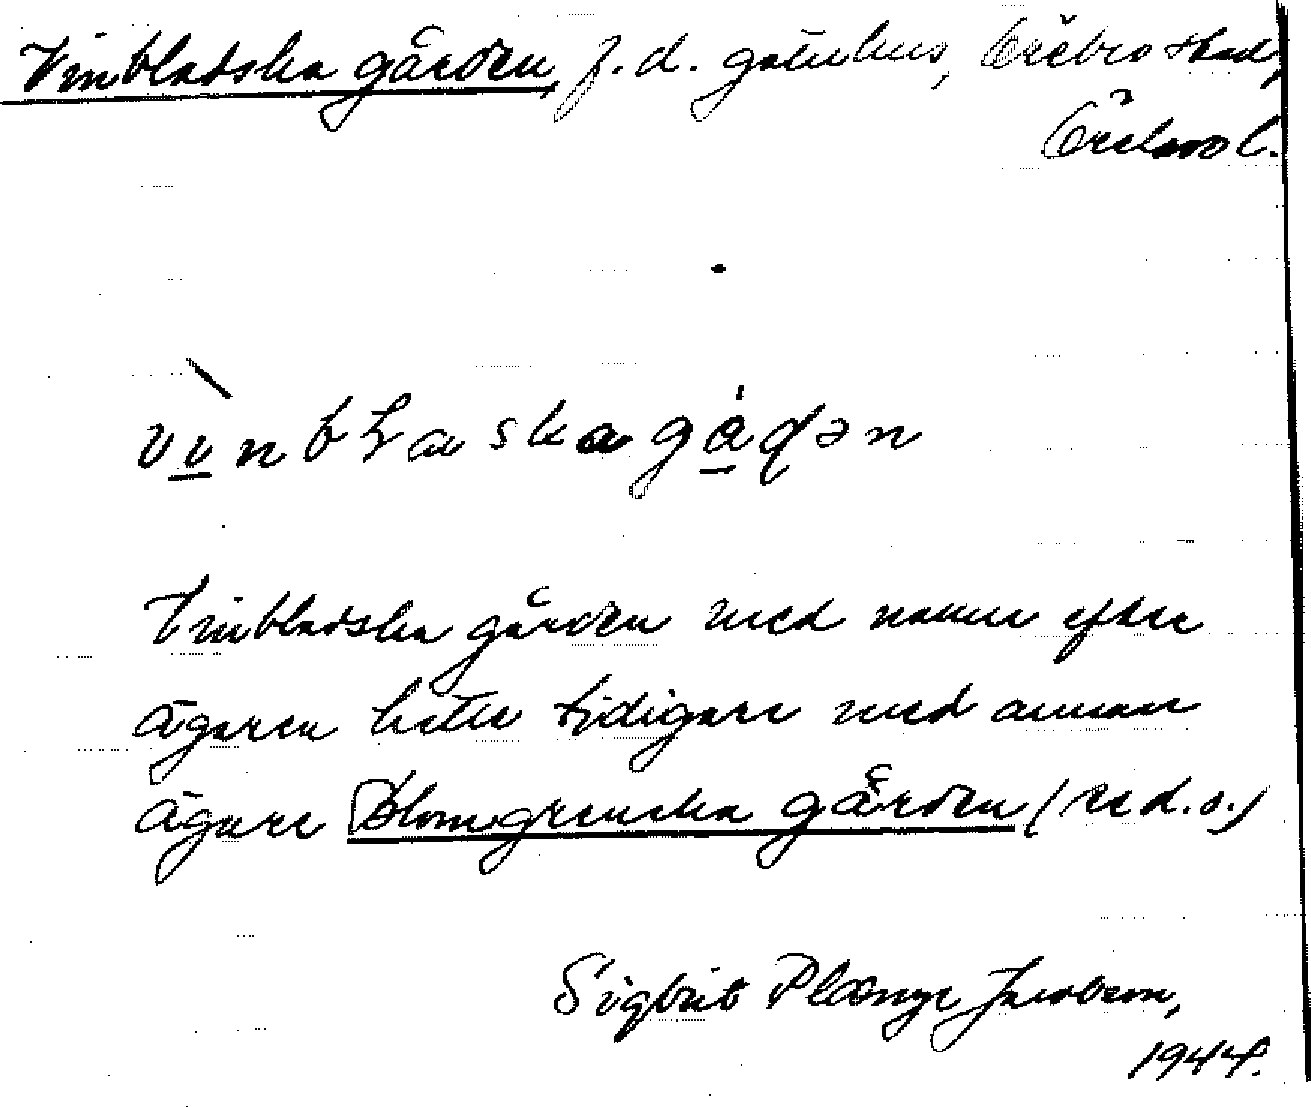 Vinbladska gården, f.d. gatuhus, Örebro stad,
Örebro l.
vìnbɫaskagáɖən
Vinbladska gården med namn efter
ägaren hette tidigare med annan
ägare Blomgrenska gården (se d.o.)
Sigbrit Plænge Jacobson,
1944.